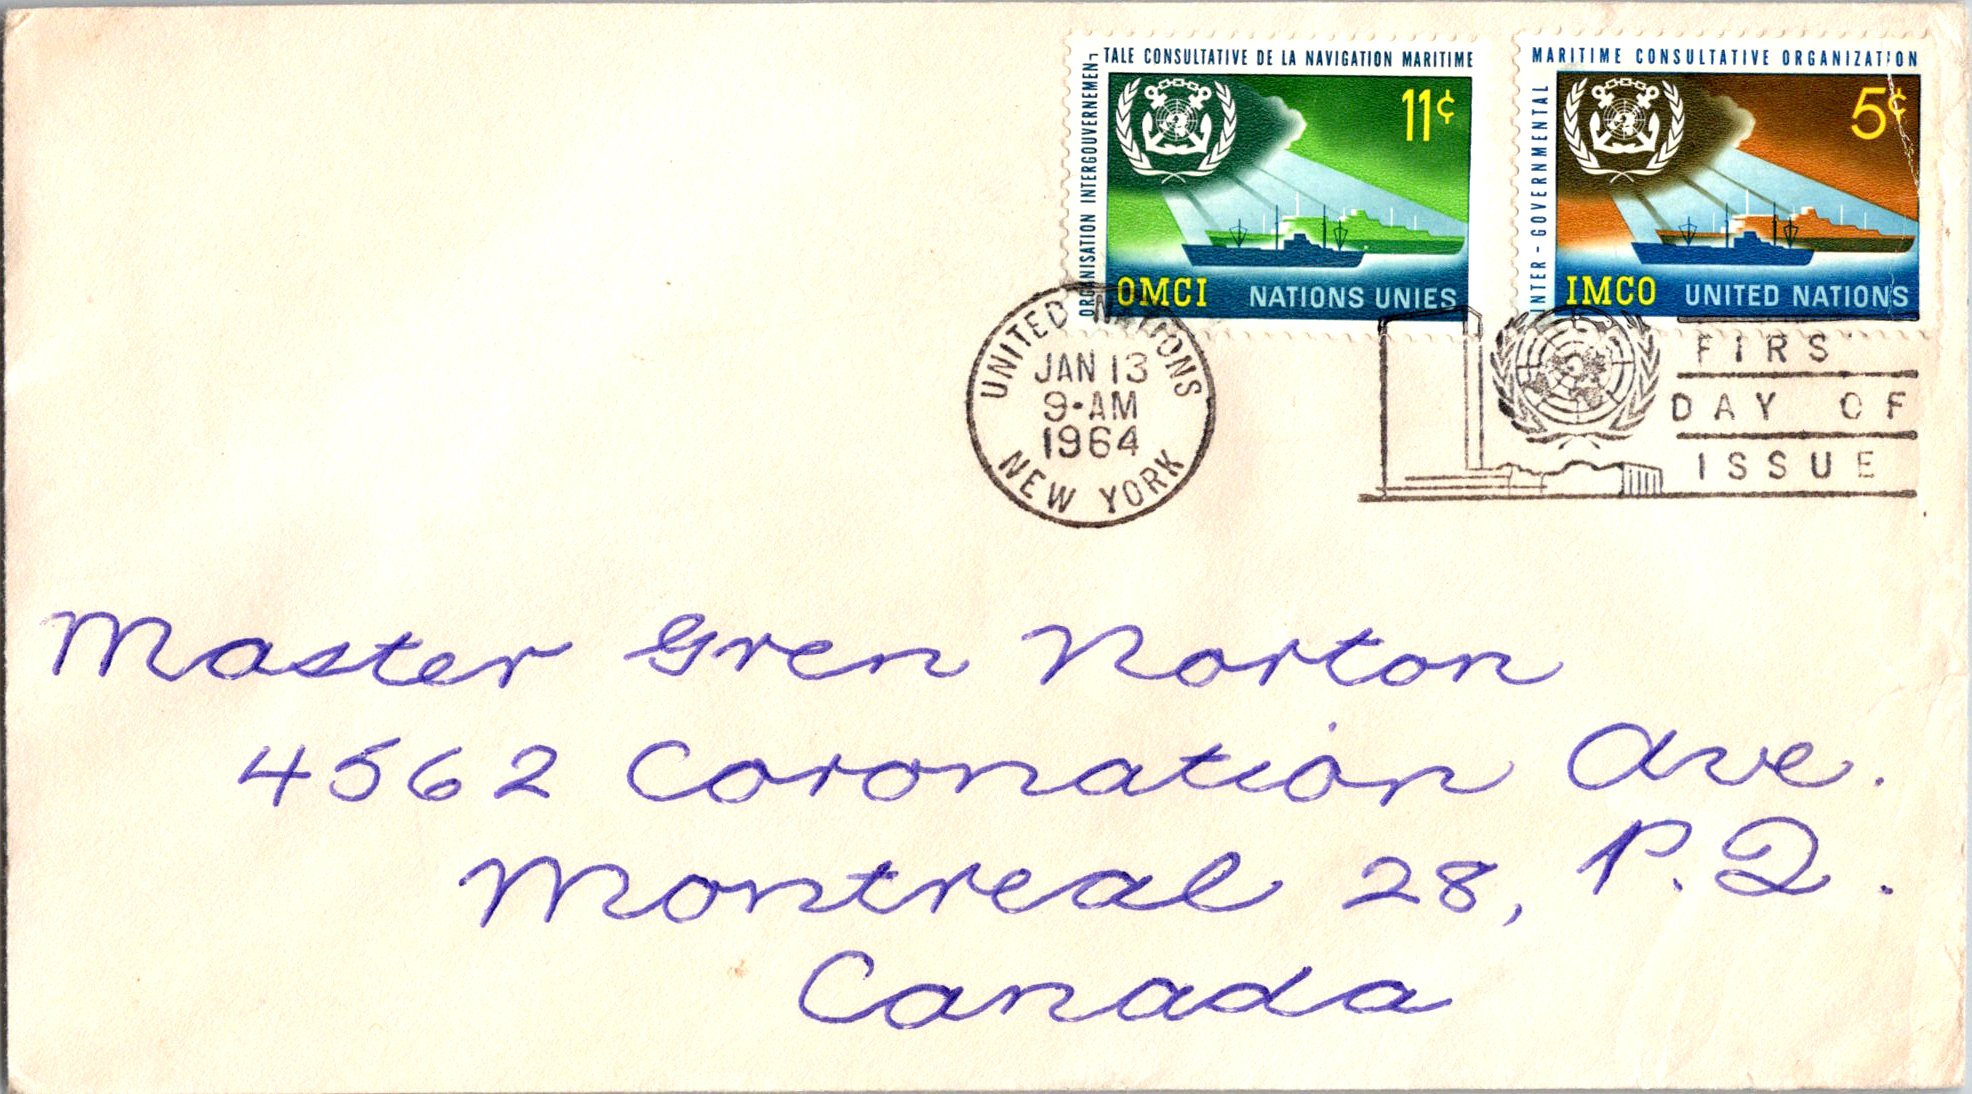 ORGANISATION INTERGOUVERNEMEN-
TALE CONSULTATIVE DE LA NAVIGATION MARITIME
11¢
OMCI NATIONS UNIES
INTER-GOVERNMENTAL
MARITIME CONSULTATIVE ORGANIZATION
5¢
IMCO UNITED NATIONS
UNITED NATIONS
JAN 13
9-AM
1964
NEW YORK
FIRST
DAY OF
ISSUE
Master Gren Norton
4562 Coronation Ave.
Montreal 28, P.Q.
Canada